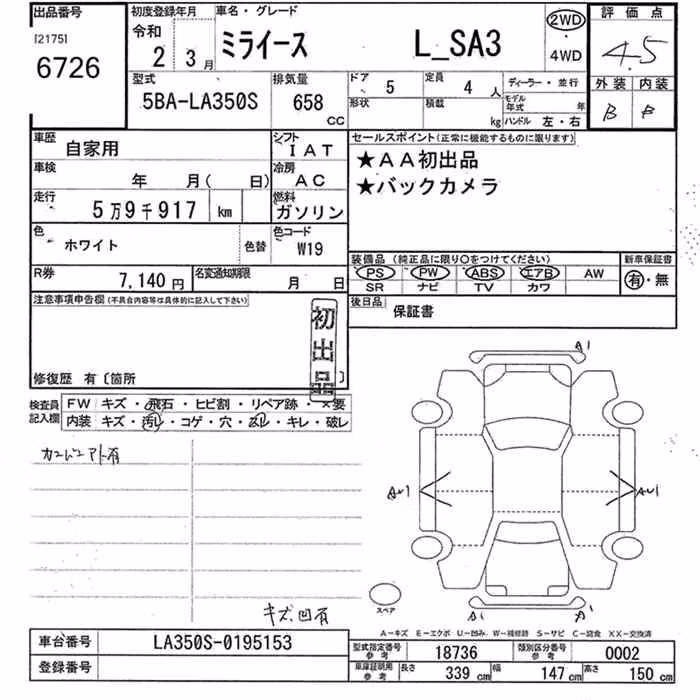 出品番号
[2175]
6726
初度登録年月
令和
2 3月
車名・グレード
ミライース L_SA3
2WD
・
4WD
評価点
4.5
外装 内装
B B
型式
5BA-LA350S
排気量
658
CC
ドア
5
定員
4 人
ディーラー・並行
形状
積載
kg
モデル年式 年
ハンドル 左・右
車歴
自家用
シフト
IAT
車検
年 月( 日)
冷房
AC
走行
5万9千917 km
燃料
ガソリン
色
ホワイト
色替
色コード
W19
R券
7,140円
名変通知期限
月 日
セールスポイント(正常に機能するものに限ります)
★AA初出品
★バックカメラ
装備品 (純正品に限り〇をつけてください)
PS PW ABS エアB AW
SR ナビ TV カワ
新車保証書
有・無
後日品
保証書
注意事項申告欄(不具合内容等は具体的に記入して下さい)
初出品
修復歴 有〔箇所 〕
検査員記入欄
FW キズ・飛石・ヒビ割・リペア跡・×要
内装 キズ・汚レ・コゲ・穴・スレ・キレ・破レ
キズ、凹有
A1
A1
スペア
A-キズ E-エクボ U-凹み W-補修跡 S-サビ C-腐食 XX-交換済
車台番号
LA350S-0195153
登録番号
型式指定番号
参考
18736
類別区分番号
参考
0002
車庫証明用
参考
長さ 339 cm 幅 147 cm 高さ 150 cm